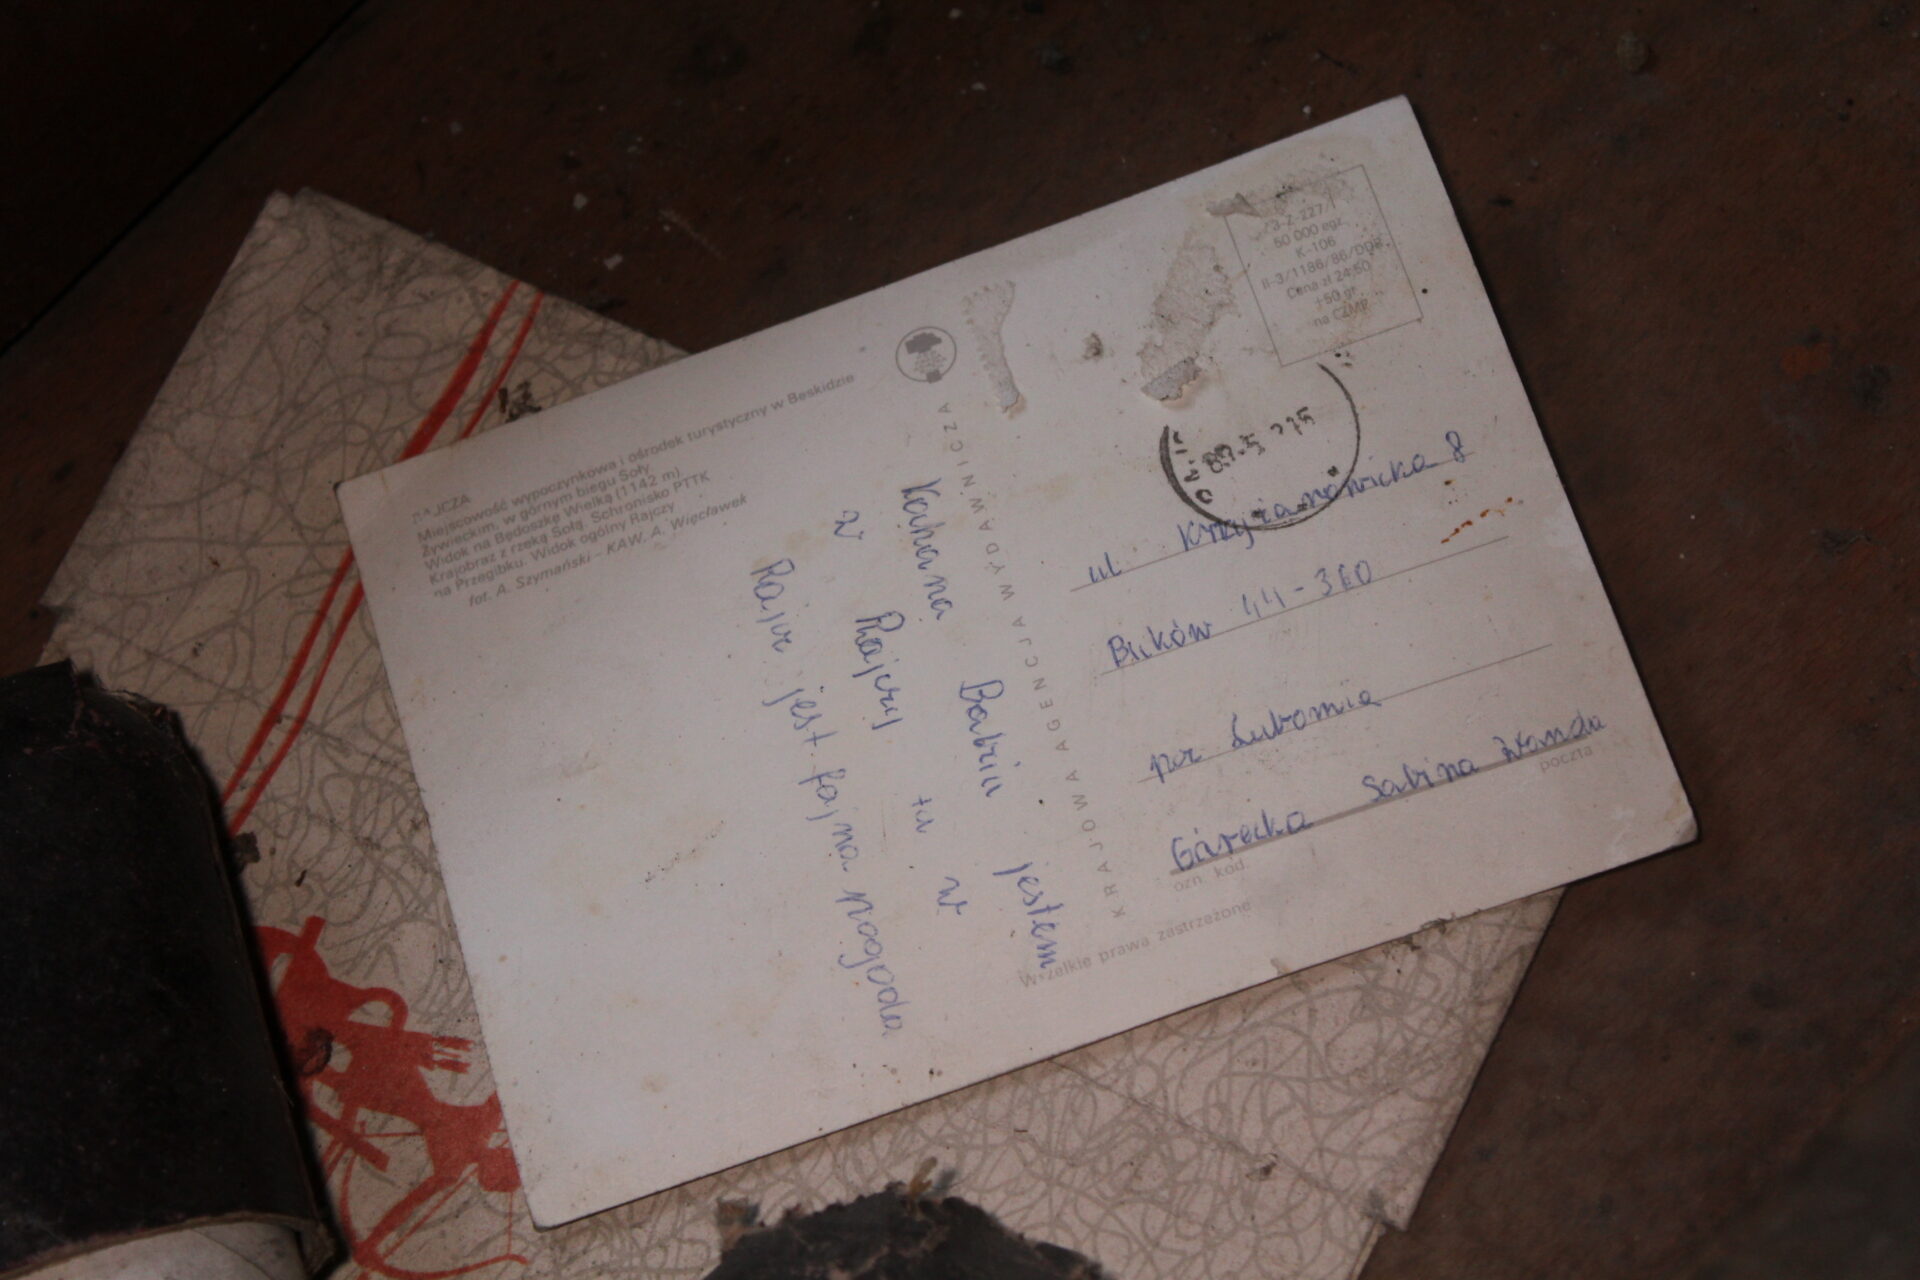 RAJCZA
Miejscowość wypoczynkowa i ośrodek turystyczny w Beskidzie
Żywieckim, w górnym biegu Soły
Widok na Będoszkę Wielką (1142 m)
Krajobraz z rzeką Sołą. Schronisko PTTK
na Przegibku. Widok ogólny Rajczy
fot. A. Szymański - KAW, A. Więcławek
Kohana Babciu jestem
z Rajczy tu w
Rajcz jest fajna pogoda
KRAJOWA AGENCJA WYDAWNICZA
Wszelkie prawa zastrzeżone
60 000 egz.
K-106
II-3/1186/86/DDB
Cena zł 24.50
+50 gr
na CZMP
ul Krzyżanowicka 8
Buków 44-360
por Lubomia
Górecka Sabina Wanda
ozn. kod.
poczta